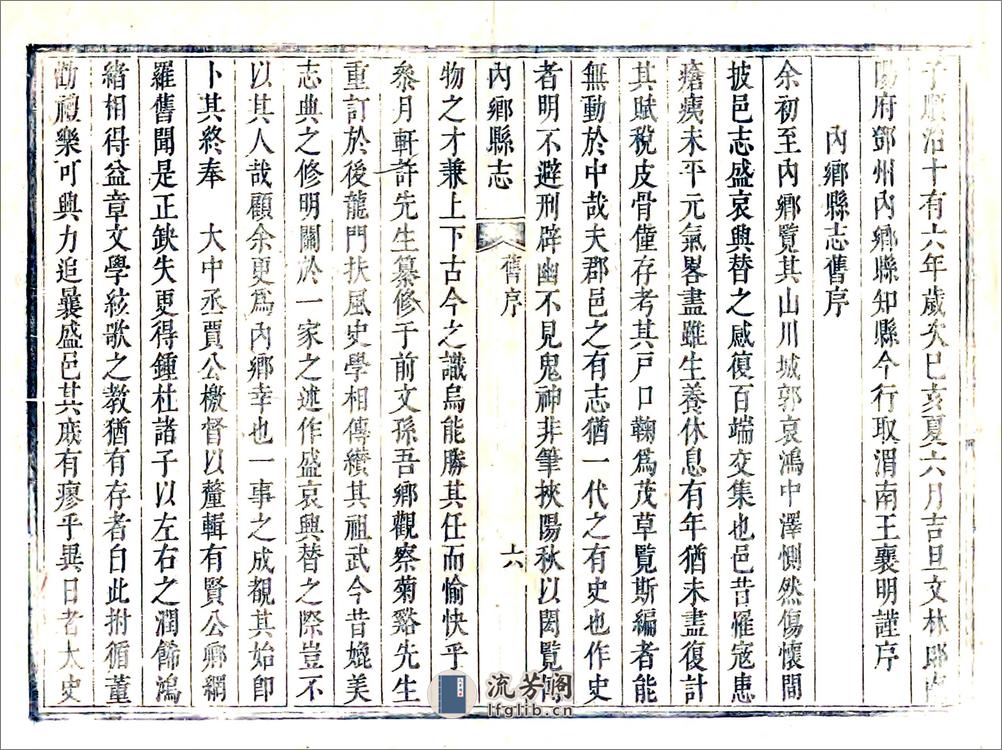 于順治十有六年歲次己亥夏六月吉旦文林郎南
陽府鄧州內鄉縣知縣今行取渭南王襄明謹序
內鄉縣志舊序
余初至內鄉覽其山川城郭哀鴻中澤惻然傷懷間
披邑志盛哀興替之感復百端交集也邑昔罹寇患
瘡痍未平元氣畧盡雖生養休息有年猶未盡復計
其賦稅皮骨僅存考其戸口鞠爲茂草覽斯編者能
無動於中哉夫郡邑之有志猶一代之有史也作史
者明不避刑辟幽不見鬼神非筆挾陽秋以閎覽博
內鄉縣志
舊序
六
物之才兼上下古今之識烏能勝其任而愉快乎
叅月軒許先生纂修于前文孫吾鄉觀察菊谿先生
重訂於後龍門扶風史學相傳纘其祖武今昔媲美
志典之修明關於一家之述作盛哀興替之際豈不
以其人哉顧余更爲內鄉幸也一事之成覩其始卽
卜其終奉 大中丞賈公檄督以釐輯有賢公卿網
羅舊聞是正缺失更得鍾杜諸子以左右之潤飾鴻
緒相得益章文學絃歌之教猶有存者自此拊循董
勸禮樂可興力追曩盛邑其庶有瘳乎異日老太史
流芳閣
lfglib.cn